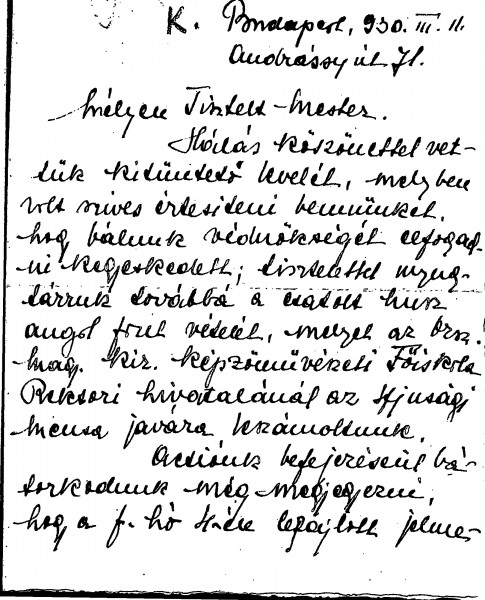 K. Budapest, 930. III. 11.
Andrássy út 71.
Mélyen Tisztelt Mester.
Hálás köszönettel vet-
tük kitüntető levelét, melyben
volt szives értesiteni bennünket,
hogy bálunk védnökségét elfogad-
ni kegyeskedett; tisztelettel nyug-
tázzuk továbbá a csatolt husz
angol font vételét, melyet az Orsz.
mag. kir. képzőművészeti Főiskola
Rektori hivatalánál az Ifjusági
mensa javára leszámoltunk.
Actiónk befejezéseül bá-
torkodunk még megjegyezni,
hogy a f. hó lezajlott jelme-